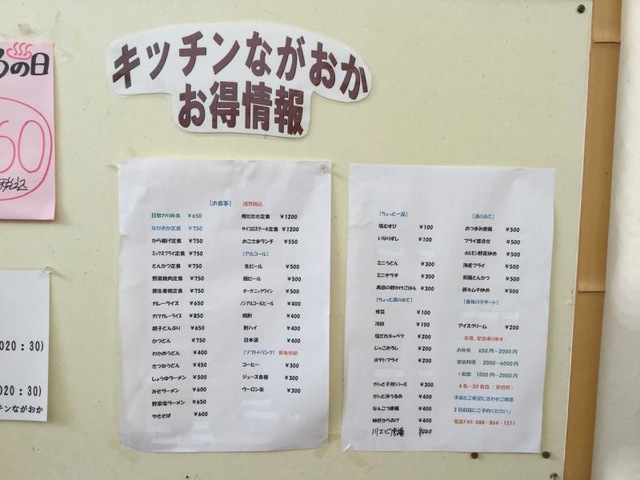 の日
60
キッチンながおか
お得情報
[お食事] 消費税込
日替わり弁当 ￥650
ながおか定食 ￥750
から揚げ定食 ￥750
ミックスフライ定食 ￥750
とんかつ定食 ￥750
野菜焼肉定食 ￥750
豚生姜焼定食 ￥750
カレーライス ￥650
カツカレーライス ￥850
親子どんぶり ￥650
かつどん ￥750
わかめうどん ￥400
きつねうどん ￥450
しょうゆラーメン ￥500
みそラーメン ￥600
野菜塩ラーメン ￥650
やきそば ￥600
鰹たたき定食 ￥1200
サイコロステーキ定食 ￥1200
おこさまランチ ￥550
[アルコール]
生ビール ￥500
瓶ビール ￥500
オーガニックワイン ￥500
ノンアルコールビール ￥400
焼酎 ￥400
酎ハイ ￥400
日本酒 ￥400
[ソフトドリンク]
コーヒー ￥300
ジュース各種 ￥300
ウーロン茶 ￥300
[ちょっと一品]
塩むすび ￥100
いなりずし ￥100
ミニうどん ￥300
ミニサラダ ￥300
真田の卵かけごはん ￥300
[ちょっと酒のあて]
枝豆 ￥200
冷奴 ￥100
塩だれキャベツ ￥200
じゃこおろし ￥200
ポテトフライ ￥200
がらと子持シシャモ ￥300
がらと炒うるめ ￥400
なんこつ唐揚 ￥400
砂肝からあげ ￥400
川エビ唐揚
[酒のあて]
おつまみ唐揚 ￥500
フライ盛合せ ￥500
ホルモン野菜炒め ￥500
海老フライ ￥500
初鰹とんかつ ￥500
豚キムチ炒め ￥500
[最後のデザート]
アイスクリーム ￥200
会席、宴会承ります
お弁当 650円〜2000円
宴会料理 2000〜6000円
4名〜50名位
予算とご希望に合わせご用意
3日前迄にご予約ください
電話FAX 088-864-1311
020：30)
020：30)
チンながおか